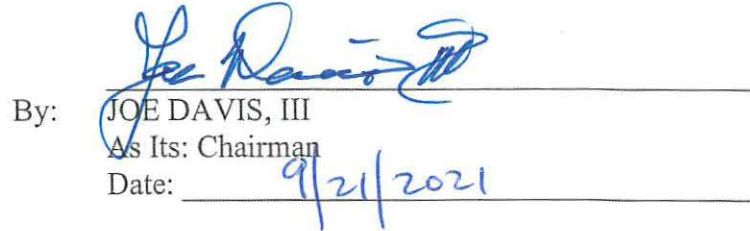 Joe Davis III
By: JOE DAVIS, III
As Its: Chairman
Date: 9/21/2021